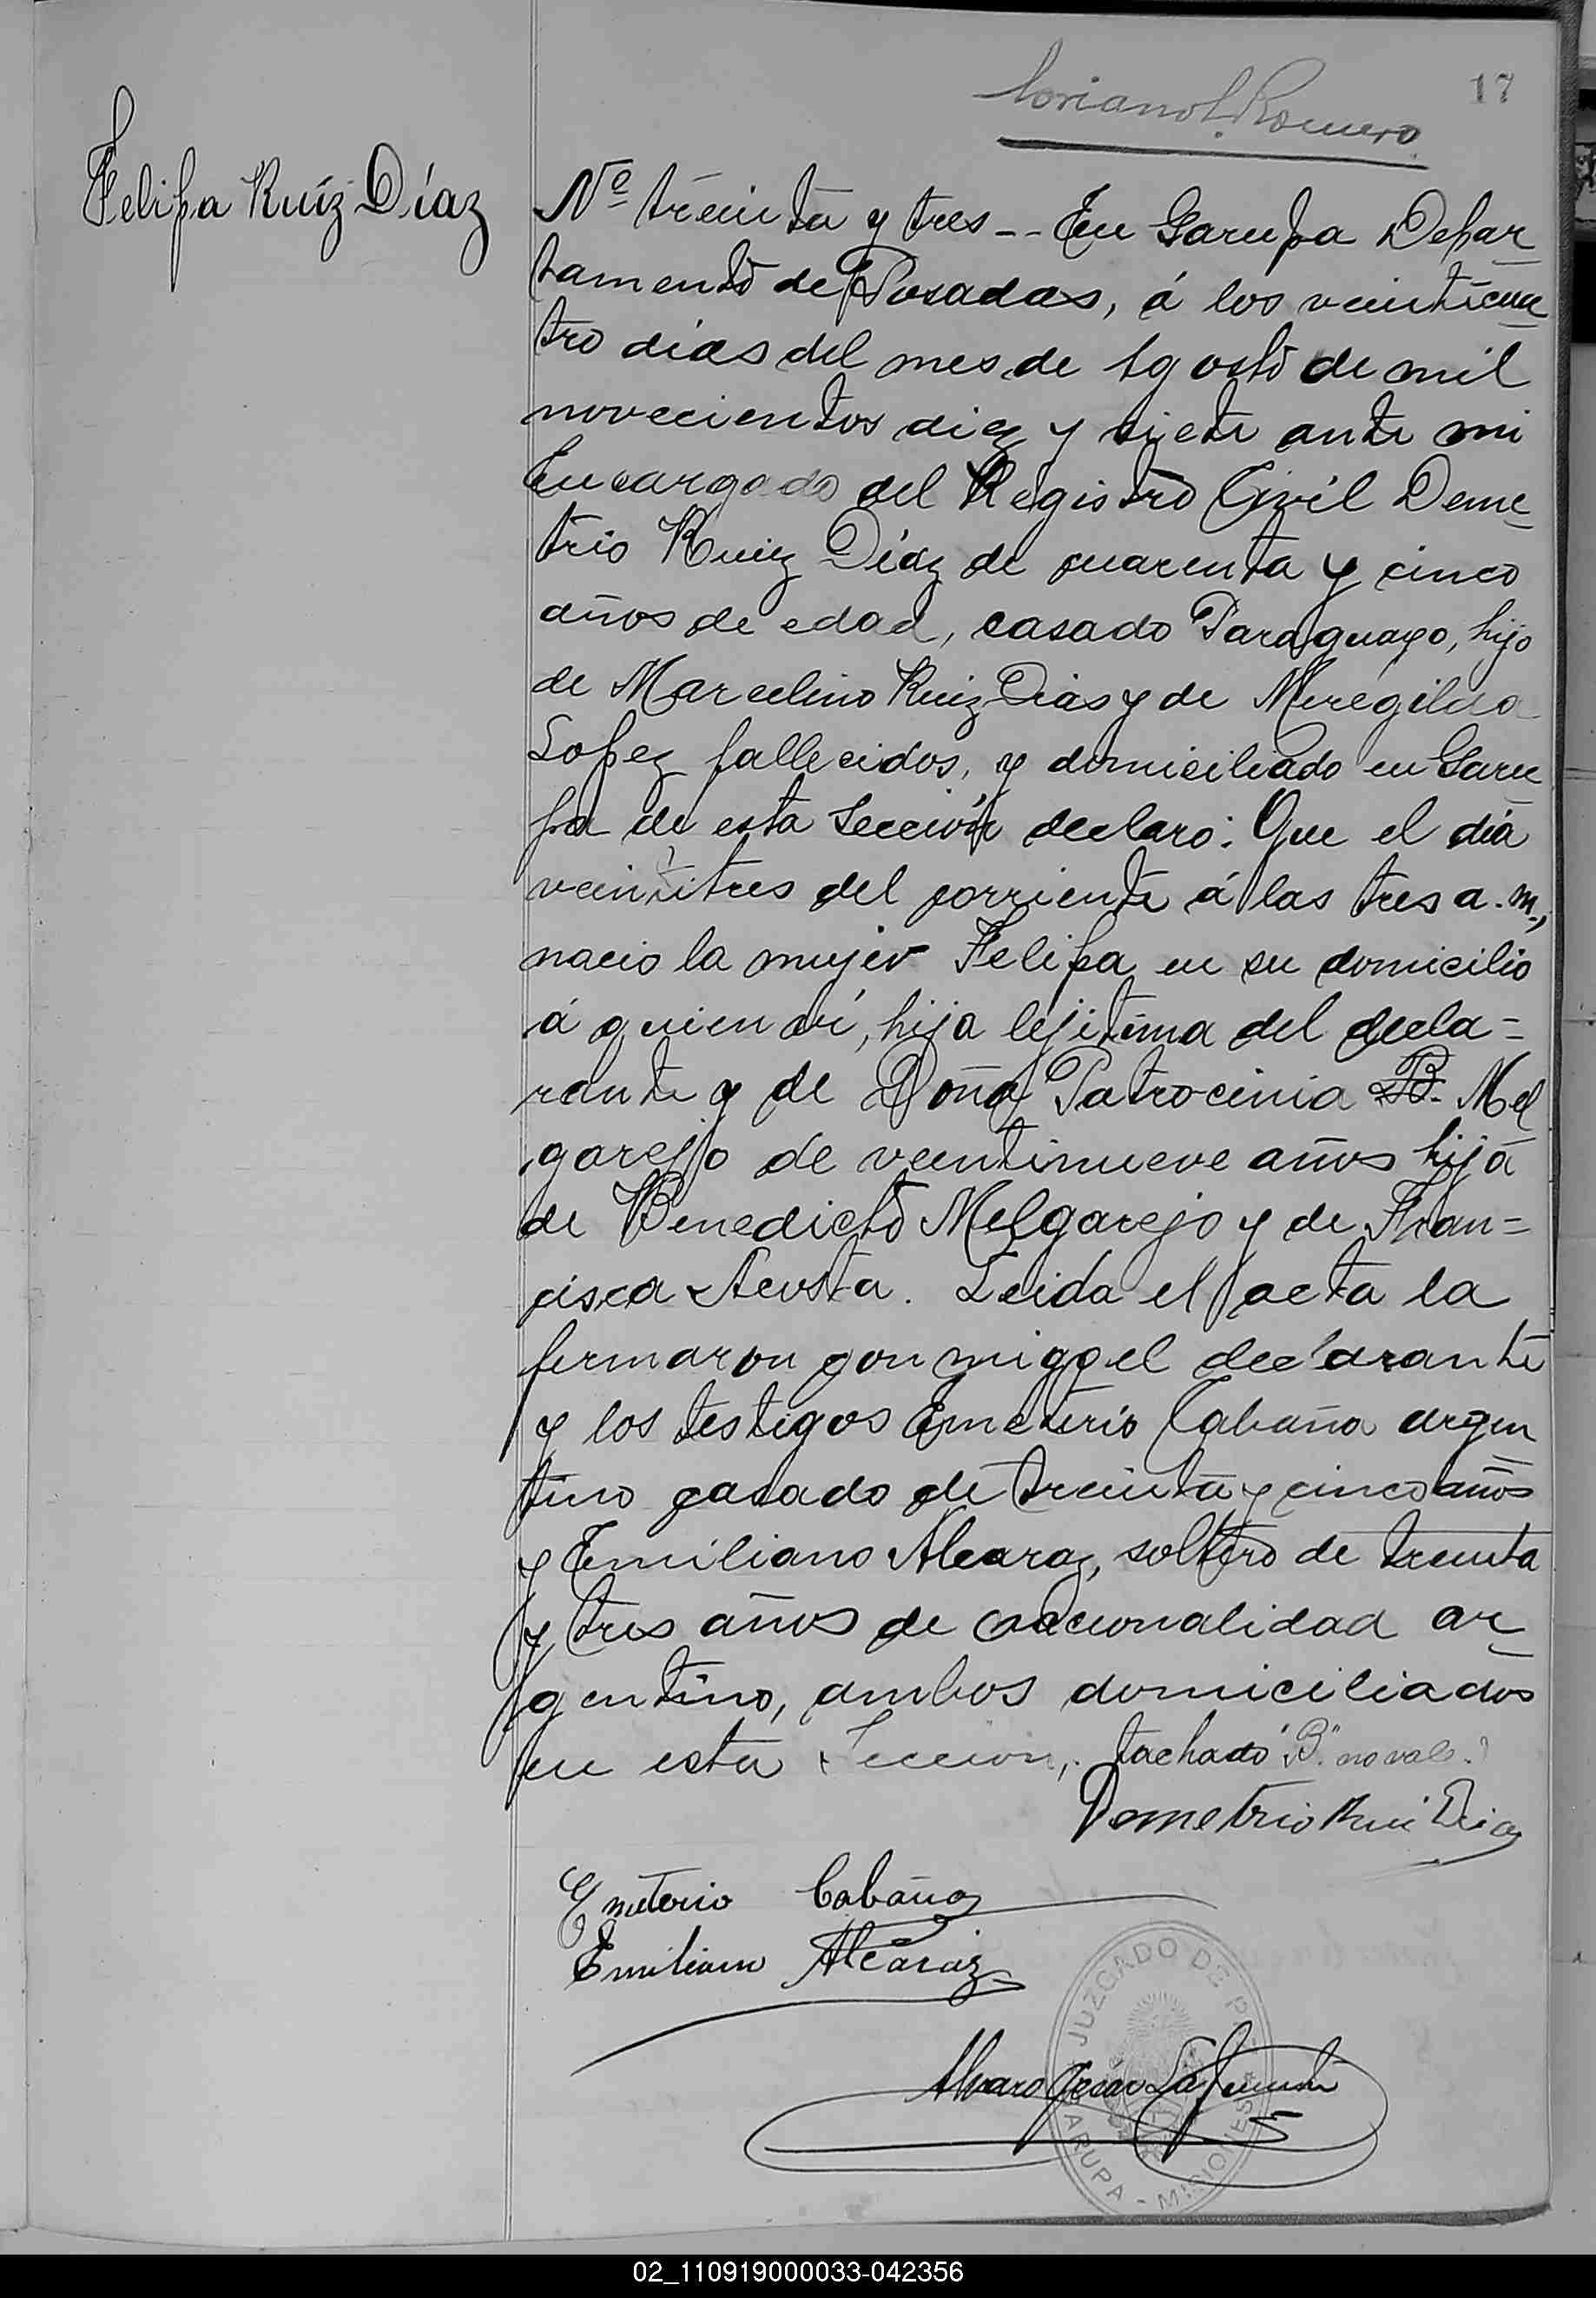 17
Romero
Felipa Ruíz Díaz
Nº treinta y tres -- En Garupa Depar
tamento de Posadas, á los veinticua
tro días del mes de Agosto de mil
novecientos diez y siete ante mi
Encargado del Registro Civil Deme
trio Ruiz Díaz de cuarenta y cinco
años de edad, casado Paraguayo, hijo
de Marcelino Ruiz Dias y de Meregilda
Lopez fallecidos, y domiciliado en Garu
pa de esta Sección declaro: Que el día
veintitres del corriente á las tres a.m.,
nacio la mujer Felipa en su domicilio
á quien ví, hija lejitima del decla=
rante y de Doña Patrocinia B. Mel
garejo de veentinueve años hija
de Benedicto Melgarejo y de Fran=
cisca Acosta. Leida el acta la
firmaron conmigo el declarante
y los testigos Emeterio Cabaña argen
tino casado de treinta y cinco años
y Emiliano Alcaraz, soltero de treinta
y tres años de nacionalidad ar
gentino, ambos domiciliados
en esta Seccion,. tachado "B." no vale.
Demetrio Rui Diaz
Emeterio Cabaña
Emiliano Alcaraz
JUZGADO DE P
Alvaro
GARUPA - MISIONES
02_110919000033-042356